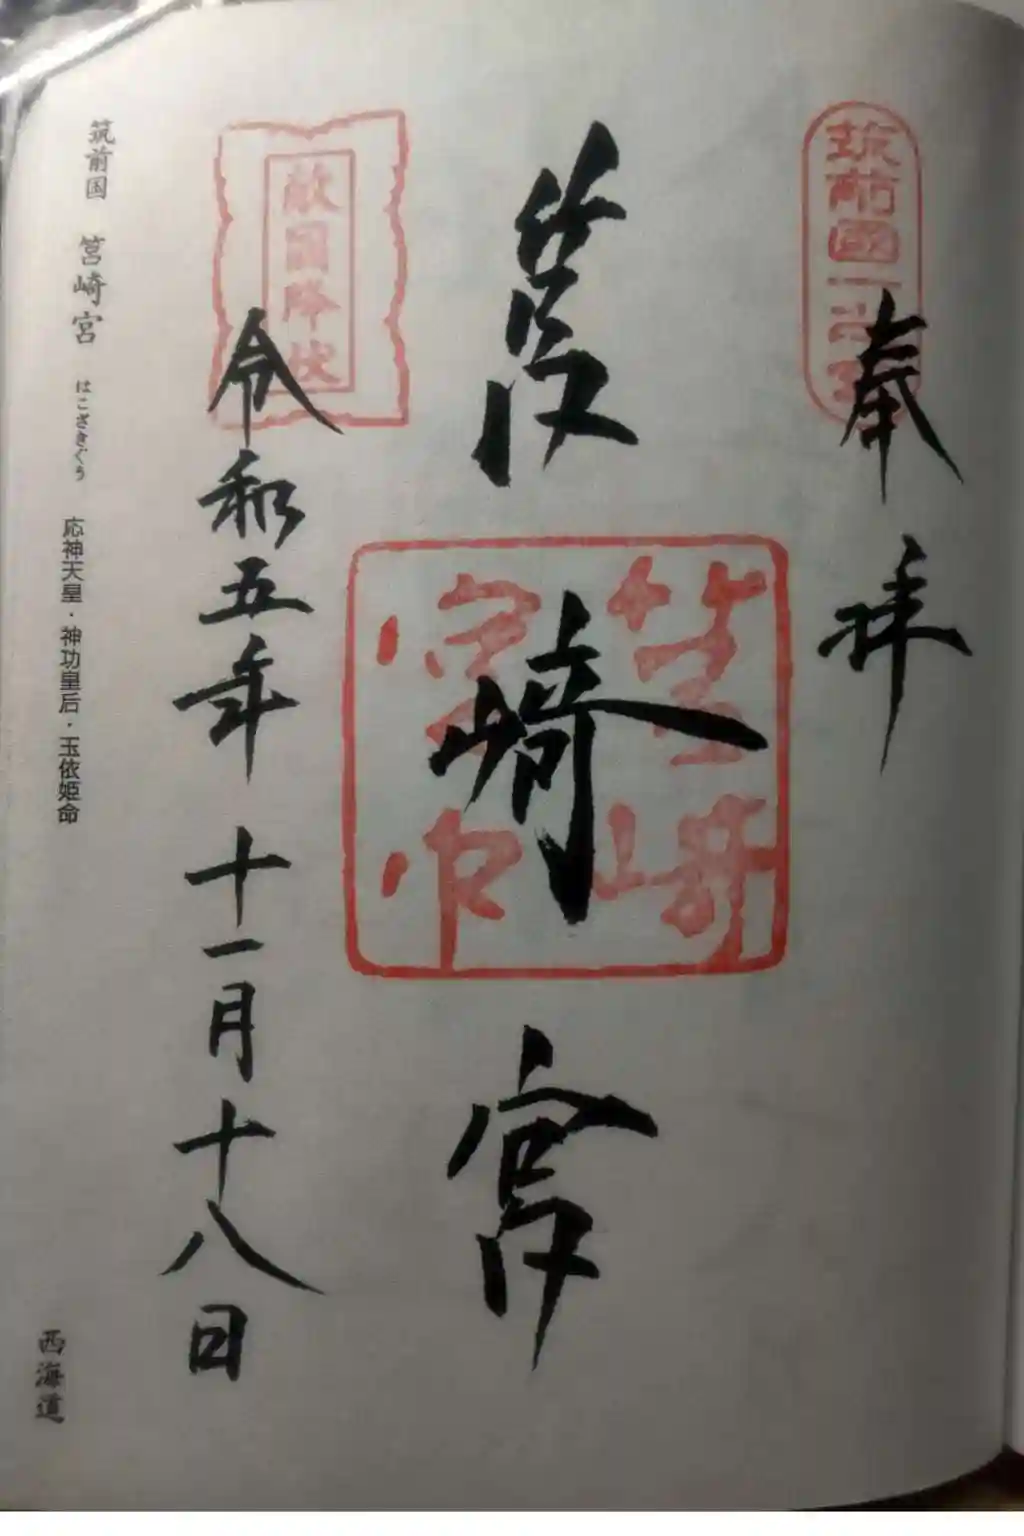 筑前國一之宮
奉拝
筥崎宮
筥崎宮印
敵国降伏
令和五年十一月十八日
筑前国 筥崎宮 はこざきぐう 応神天皇・神功皇后・玉依姫命
西海道